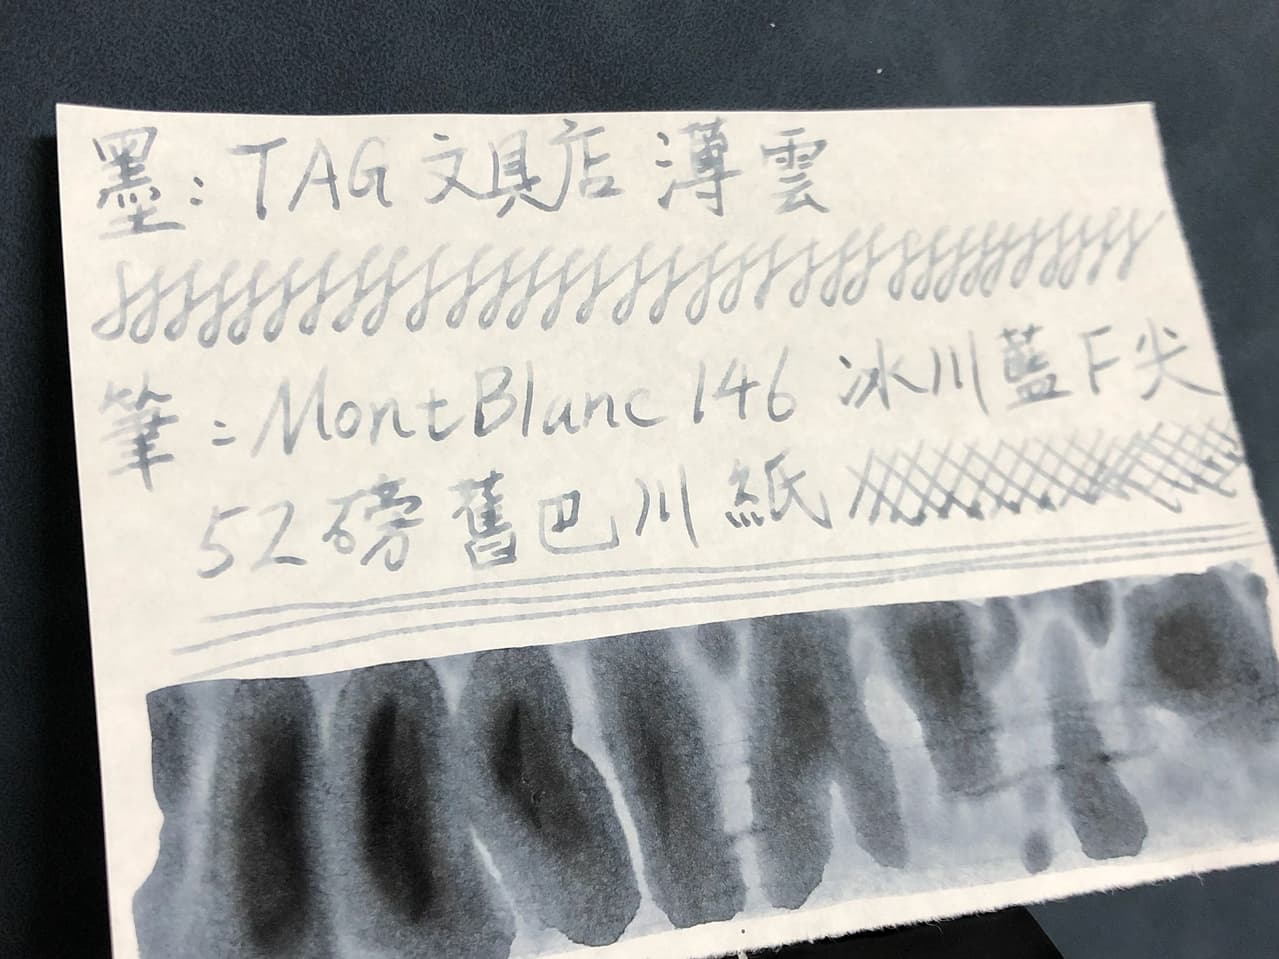 墨：TAG 文具店 薄雲
筆：MontBlanc 146 冰川藍 F 尖
52磅舊巴川紙